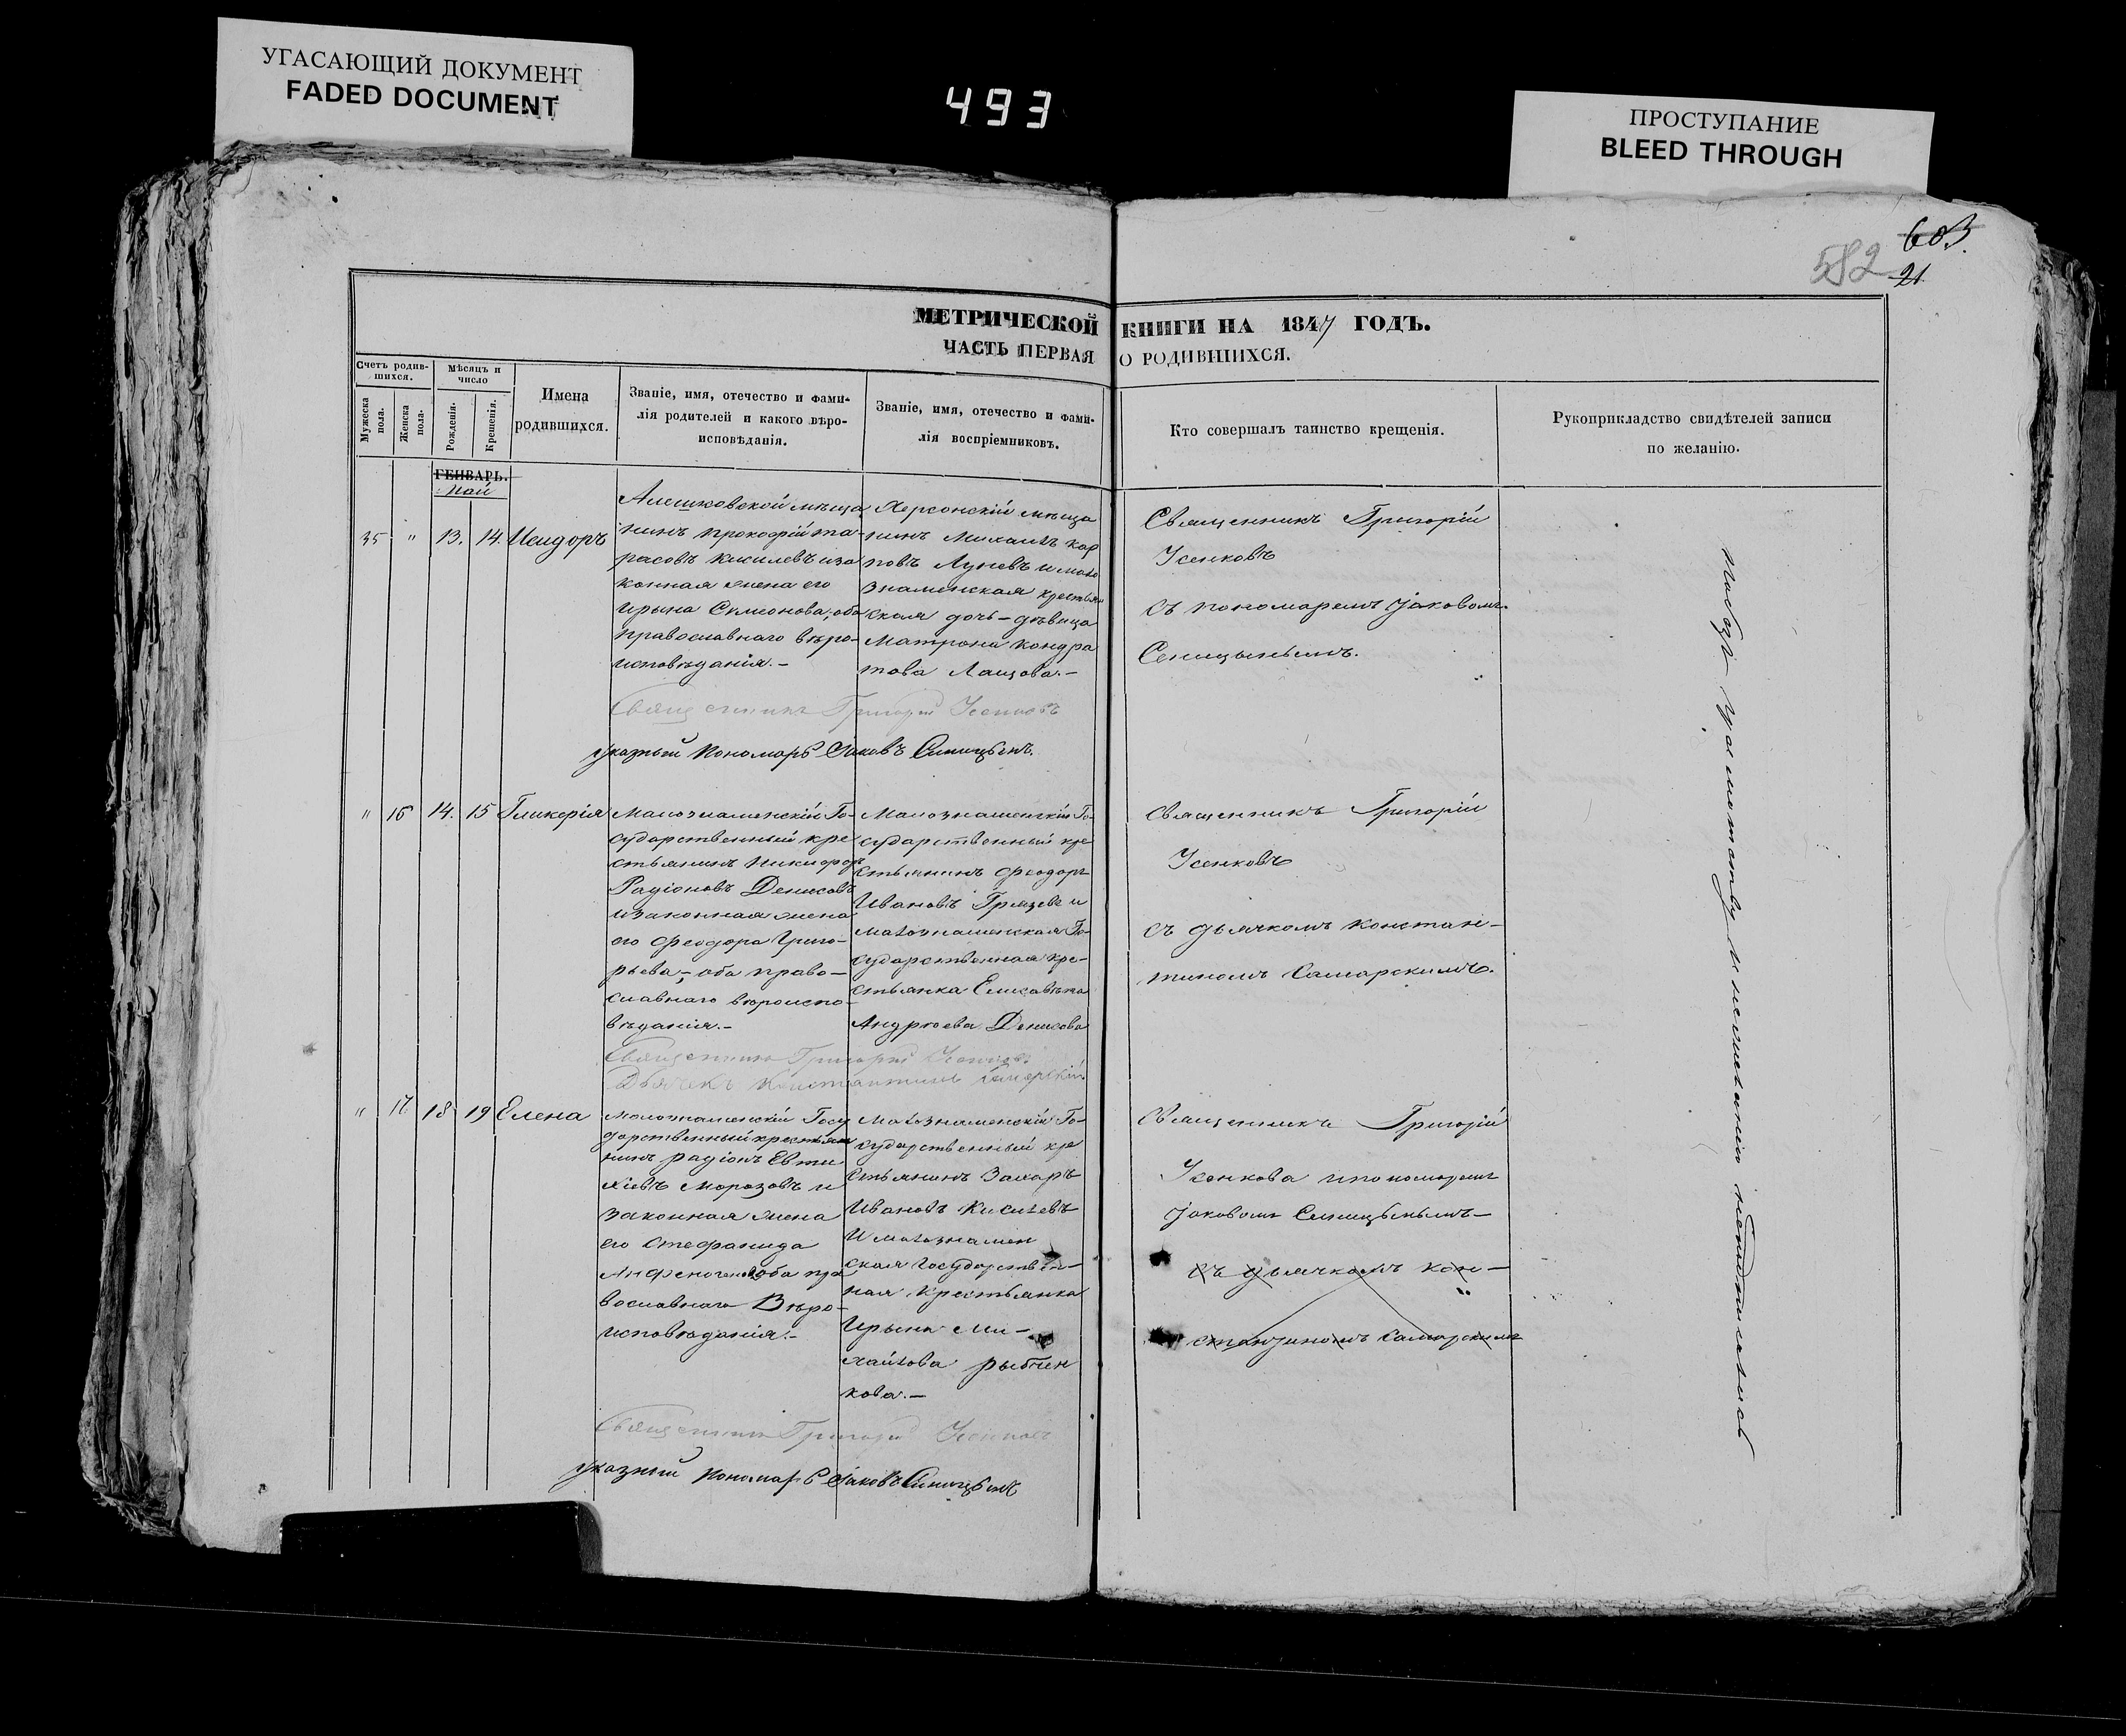 УГАСАЮЩИЙ ДОКУМЕНТ
FADED DOCUMENT
493
ПРОСТУПАНИЕ
BLEED THROUGH
603.
582
21
МЕТРИЧЕСКОЙ КНИГИ НА 1847 ГОДЪ.
ЧАСТЬ ПЕРВАЯ О РОДИВШИХСЯ.
Счетъ родив-
шихся.
Мужеска
пола.
Женска
пола.
Мѣсяцъ и
число
Рожденія.
Крещенія.
Имена
родившихся.
Званіе, имя, отечество и фами-
лія родителей и какого вѣро-
исповѣданія.
Званіе, имя, отечество и фами-
лія воспріемниковъ.
Кто совершалъ таинство крещенія.
Рукоприкладство свидѣтелей записи
по желанію.
ГЕНВАРЬ.
Май
35 " 13. 14. Исидоръ
Алешковской мѣща
нинъ Прокофій Та-
расовъ Киселевъ иза
конная жена его
Ирына Семионова, оба
православнаго вѣро-
исповѣданія.-
Херсонскій мѣща
нинъ Михаилъ Кар
повъ Луневъ и мало
знаменская крестьян
ская дочь-дѣвица
Матрона Кондра
това Лащова.-
Священникъ Григорій
Усенковъ
съ пономаремъ Іаковомъ
Сеницынымъ.
Священникъ Григорій Усенковъ
Указный Пономарь Іаковъ Синицынъ.
" 16 14. 15 Гликерія
Малознаменскій Го-
сударственный кре
стьянинъ Никифоръ
Радіоновъ Денисовъ
изаконная жена
его Феодора Григо-
рьева,-оба право-
славнаго вѣроиспо-
вѣданія.-
Малознаменскій Го-
сударственный кре
стьянинъ Феодоръ
Ивановъ Грязевъ и
малознаменская Го-
сударственная кре-
стьянка Елисавѣта
Андреева Денисова
Священникъ Григорій
Усенковъ
съ дьячкомъ Констан-
тиномъ Самарскимъ.
Священникъ Григорій Усенковъ.
Дьячекъ Константинъ Самарскій.
" 17. 18 19 Елена
Малознаменскій Госу
дарственный крестьян
нинъ Радіонъ Евти
хіевъ Морозовъ и
законная жена
его Стефанида
оба пра
вославнаго Вѣро-
исповѣданія.-
Малознаменскій Го-
сударственный кре
стьянинъ Захаръ
Ивановъ Киселевъ
И малознамен
ская Государствен-
ная Крестьянка
Ирына Ми-
хайлова Рыбчен
кова.-
Священникъ Григорій
Усенкова ипономаремъ
Іаковомъ Синицынымъ-
съ дьячкомъ Кон-
стантиномъ Самарскимъ
Священникъ Григорій Усенковъ
Указный Пономарь Іаковъ Синицынъ